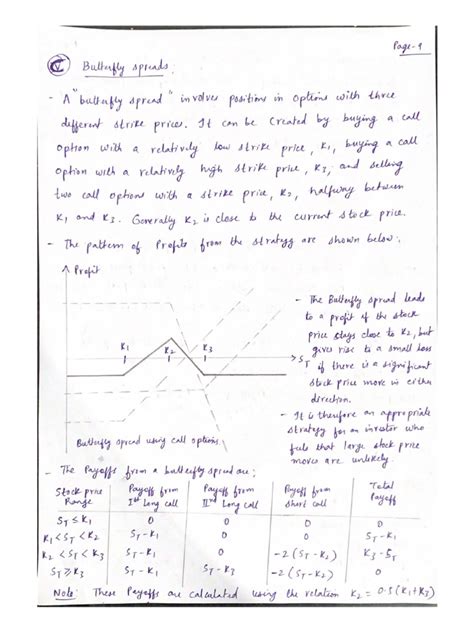 Page-1
Butterfly spreads
- A "butterfly spread" involves positions in options with three
different strike prices. It can be created by buying a call
option with a relatively low strike price, K1, buying a call
option with a relatively high strike price, K3, and selling
two call options with a strike price, K2, halfway between
K1 and K3. Generally K2 is close to the current stock price.
- The pattern of Profits from the strategy are shown below:
Profit
K1 K2 K3
ST
Butterfly spread using call options
- The Butterfly spread leads
to a profit if the stock
price stays close to K2, but
gives rise to a small loss
if there is a significant
stock price move in either
direction.
- It is therefore an appropriate
strategy for an investor who
feels that large stock price
moves are unlikely.
- The Payoffs from a butterfly spread are:
Stock price Range | Payoff from Ist long call | Payoff from IInd long call | Payoff from short call | Total Payoff
ST ≤ K1 | 0 | 0 | 0 | 0
K1 < ST < K2 | ST - K1 | 0 | 0 | ST - K1
K2 < ST < K3 | ST - K1 | 0 | -2(ST - K2) | K3 - ST
ST ≥ K3 | ST - K1 | ST - K3 | -2(ST - K2) | 0
Note: These Payoffs are calculated using the relation K2 = 0.5(K1+K3)